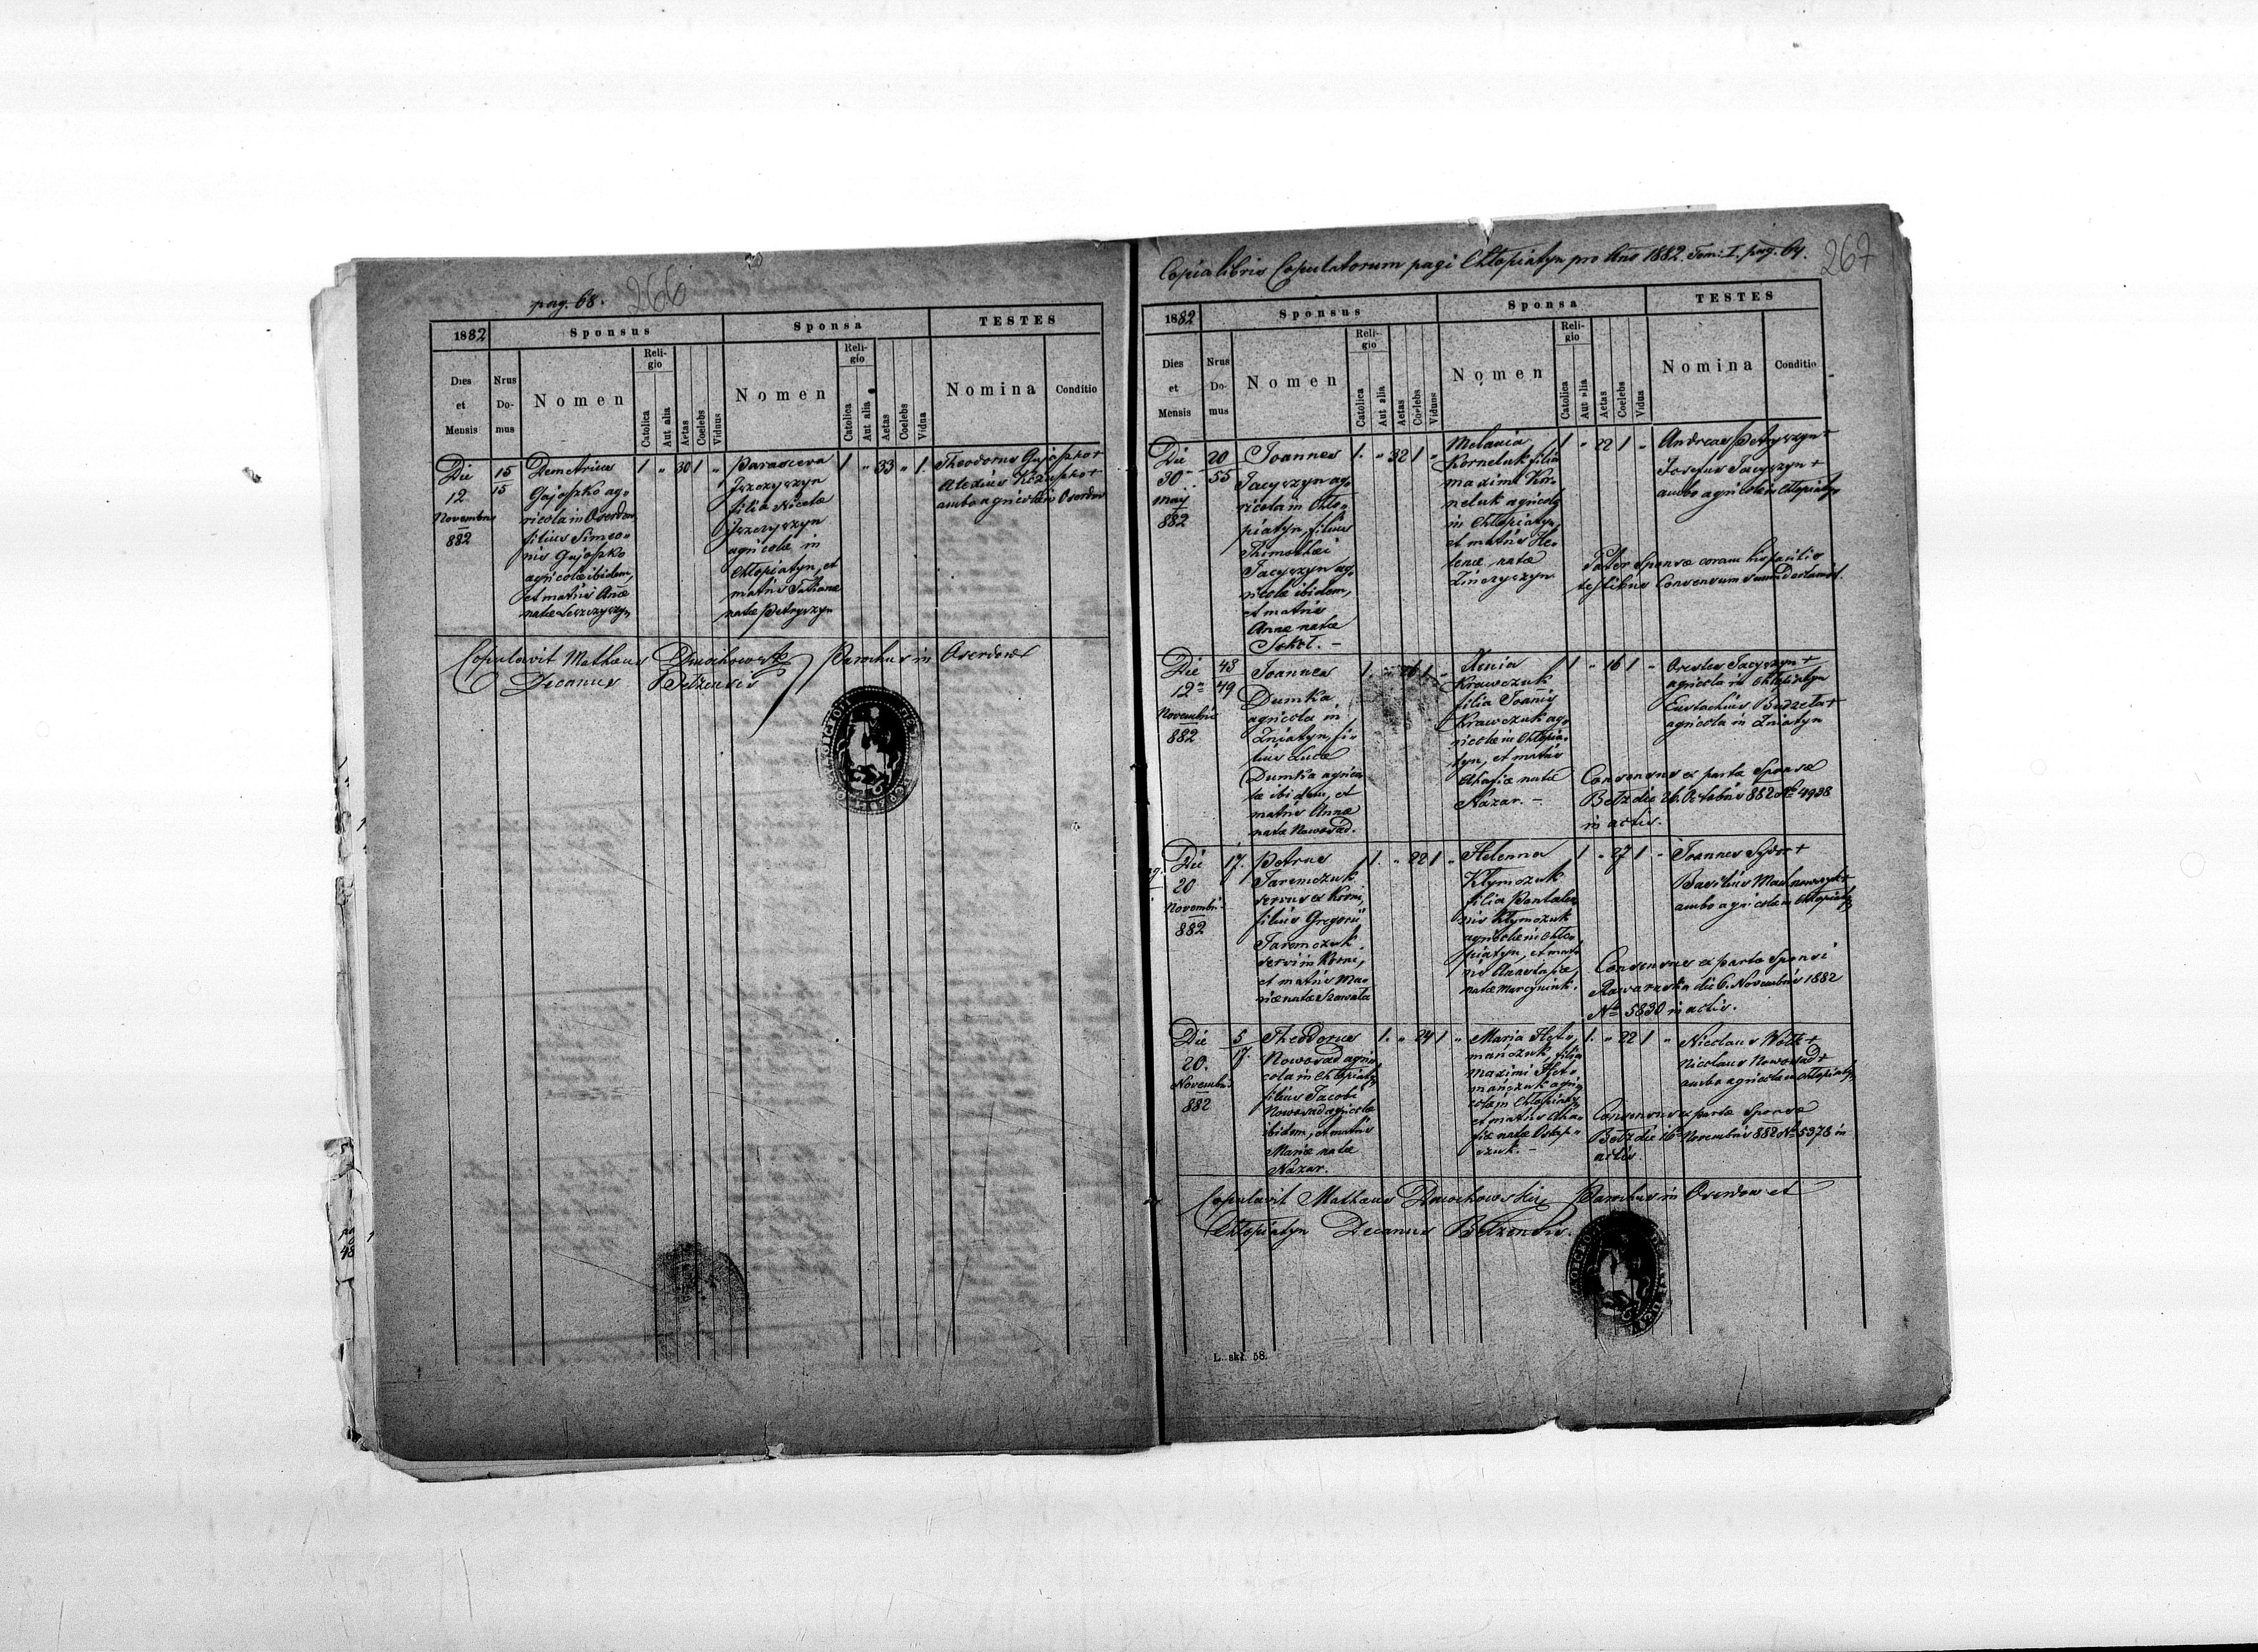 pag. 68. 266
1882 Sponsus Sponsa TESTES
Dies et Mensis
Nrus Domus
Nomen
Religio
Catolica
Aut alia
Aetas
Coelebs
Viduus
Nomen
Religio
Catolica
Aut alia
Aetas
Coelebs
Vidua
Nomina
Conditio
Die
12
Novembris
882
15
15
Demetrius
Gajosżko ag-
ricola in Oserdow,
filius Simeo-
nis Gajosżko
agricolæ ibidem,
et matris Anæ
natæ Leszczyszyn
1 " 30 1 "
Parasceva
filia Nicolai
agricolæ in
Chłopiatyn, et
matris Tatianæ
natæ Petryszyn
1 " 33 " 1.
Theodorus Gajosżko +
Alexius +
ambo agricolæ in Oserdow
Copulavit Mathæus Parochus in Oserdow
Decanus Bełzensis
Copia libris Copulatorum pagi Chłopiatyn pro Ano 1882. Tom: I. pag. 64. 267
1882 Sponsus Sponsa TESTES
Dies et Mensis
Nrus Domus
Nomen
Religio
Catolica
Aut alia
Aetas
Coelebs
Viduus
Nomen
Religio
Catolica
Aut alia
Aetas
Coelebs
Vidua
Nomina
Conditio
Die
30
May
882
20
55
Joannes
Jacyszyn ag-
ricola in Chło-
piatyn, filius
Thimothei
Jacyszyn ag-
ricolæ ibidem,
et matris
Annæ natæ
Sokoł. –
1. " 32 1 "
Melania
Korneluk filia
Maximi Kor-
neluk agricolæ
in Chłopiatyn,
et matris He-
lenæ natæ
1 " 22 1 "
Andreas Petryszyn +
Josefus Jacyszyn +
ambo agricolæ in Chłopiatyn
Pater Sponsæ coram his
testibus Consensum suum Declaravit.
Die
12
Novembris
882
43
49
Joannes
Dumka
agricola in
Żniatyn, fi-
lius Lucæ
Dumka agrico-
læ ibidem, et
matris Annæ
natæ Nowosad.
1. " 26 1 "
Xenia
Krawczuk
filia Joanis
Krawczuk ag-
ricolæ in Chłopia-
tyn, et matris
natæ
Nazar. –
1 " 16 1 "
Orestes Jacyszyn +
agricola in Chłopiatyn
Eustachius +
agricola in Żniatyn
Consensus ex parte Sponsæ
Bełz die 26. Octobris 882 No 4938
in actis.
Die
20
Novembris
882
17.
Petrus
Jaremczuk
servus ex Korni,
filius Gregorii
Jaremczuk
servi in Korni,
et matris Ma-
riæ natæ
1. " 22 1 "
Helenna
Klymczuk
filia Pantaleo-
nis Klymczuk
agricolæ in Chło-
piatyn, et mat-
ris Anastasiæ,
natæ Marcyniuk.
1 " 27 1 "
Joannes Sydor +
Basilius +
ambo agricolæ in Chłopiatyn
Consensus ex parte Sponsi
Rawa ruska die 6. Novembris 1882
No 5830 in actis.
Die
20.
Novembris
882
5
17.
Theodorus
Nowosad agri-
cola in Chłopiatyn
filius Jacobi
Nowosad agricolæ
ibidem, et matris
Mariæ natæ
Nazar.
1. " 24 1 "
Maria Heto-
mańczuk, filia
Maximi Heto-
mańczuk agri-
colæ in Chłopiatyn
et matris
natæ Ostap-
czuk. –
1. " 22 1 "
Nicolaus Wołk +
Nicolaus Nowosad +
ambo agricolæ in Chłopiatyn
Consensus ex parte Sponsæ
Bełz die 16 Novembris 882 No 5378 in
actis.
Copulavit Mathæus Parochus in Oserdow et
Chłopiatyn Decanus Bełzensis.
L. skł. 58.